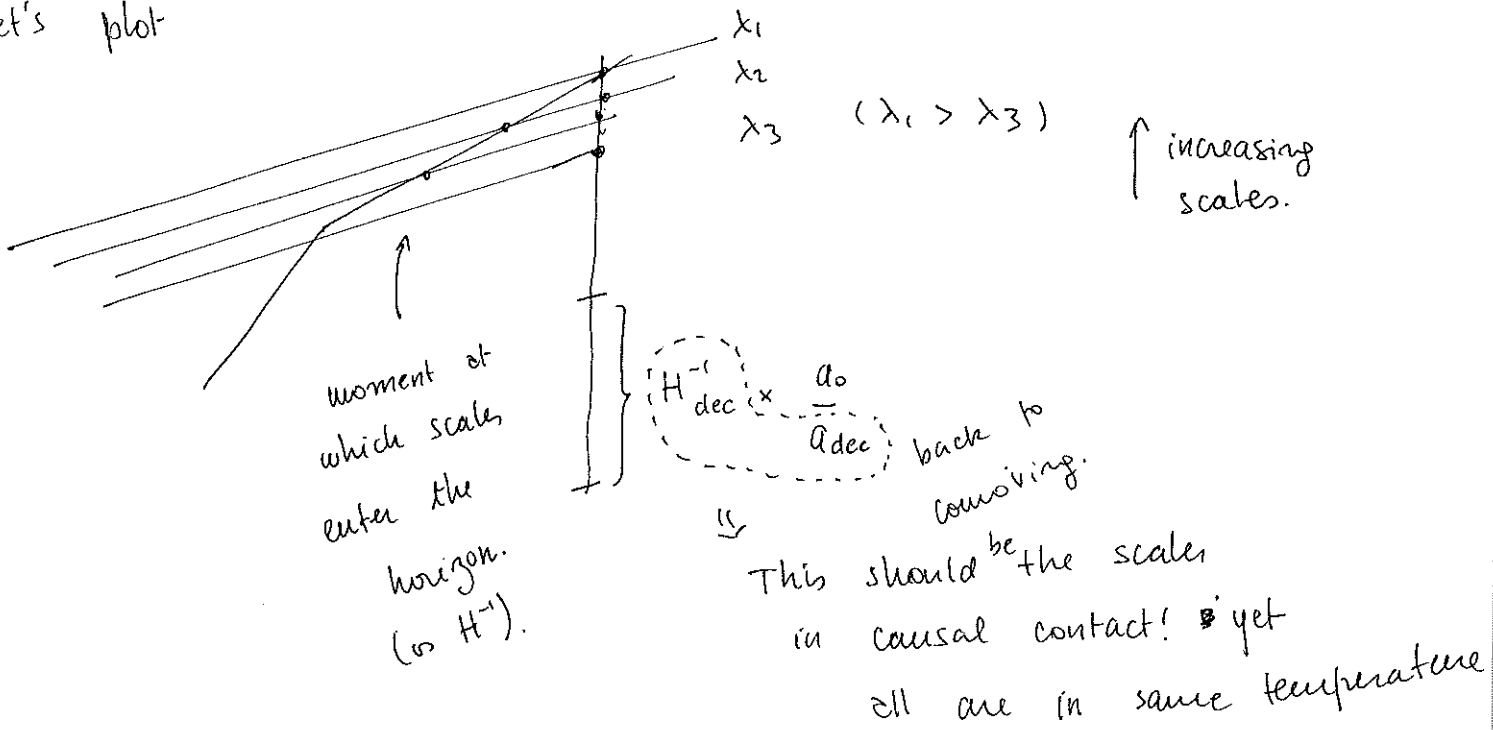 let's plot
λ1
λ2
λ3 (λ1 > λ3)
↑ increasing
scales.
moment at
which scales
enter the
horizon.
(∞ H⁻¹).
H⁻¹dec × a₀/adec
back to
comoving.
⇓
This should be the scales
in causal contact! yet
all are in same temperature